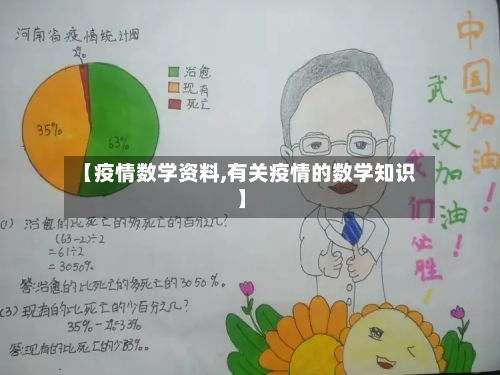 河南省疫情统计图
2%
35%
63%
治愈
现有
死亡
中国加油!
武汉加油!
我们必胜!
【疫情数学资料,有关疫情的数学知识
】
(1) 治愈的比死亡的多死亡的百分之几?
(63-2)÷2
=61÷2
=3050%
答:治愈的比死亡的多死亡的3050%。
(3)现有的比死亡的少百分之几?
35%-2%=33%
答:现有的比死亡的少33%。